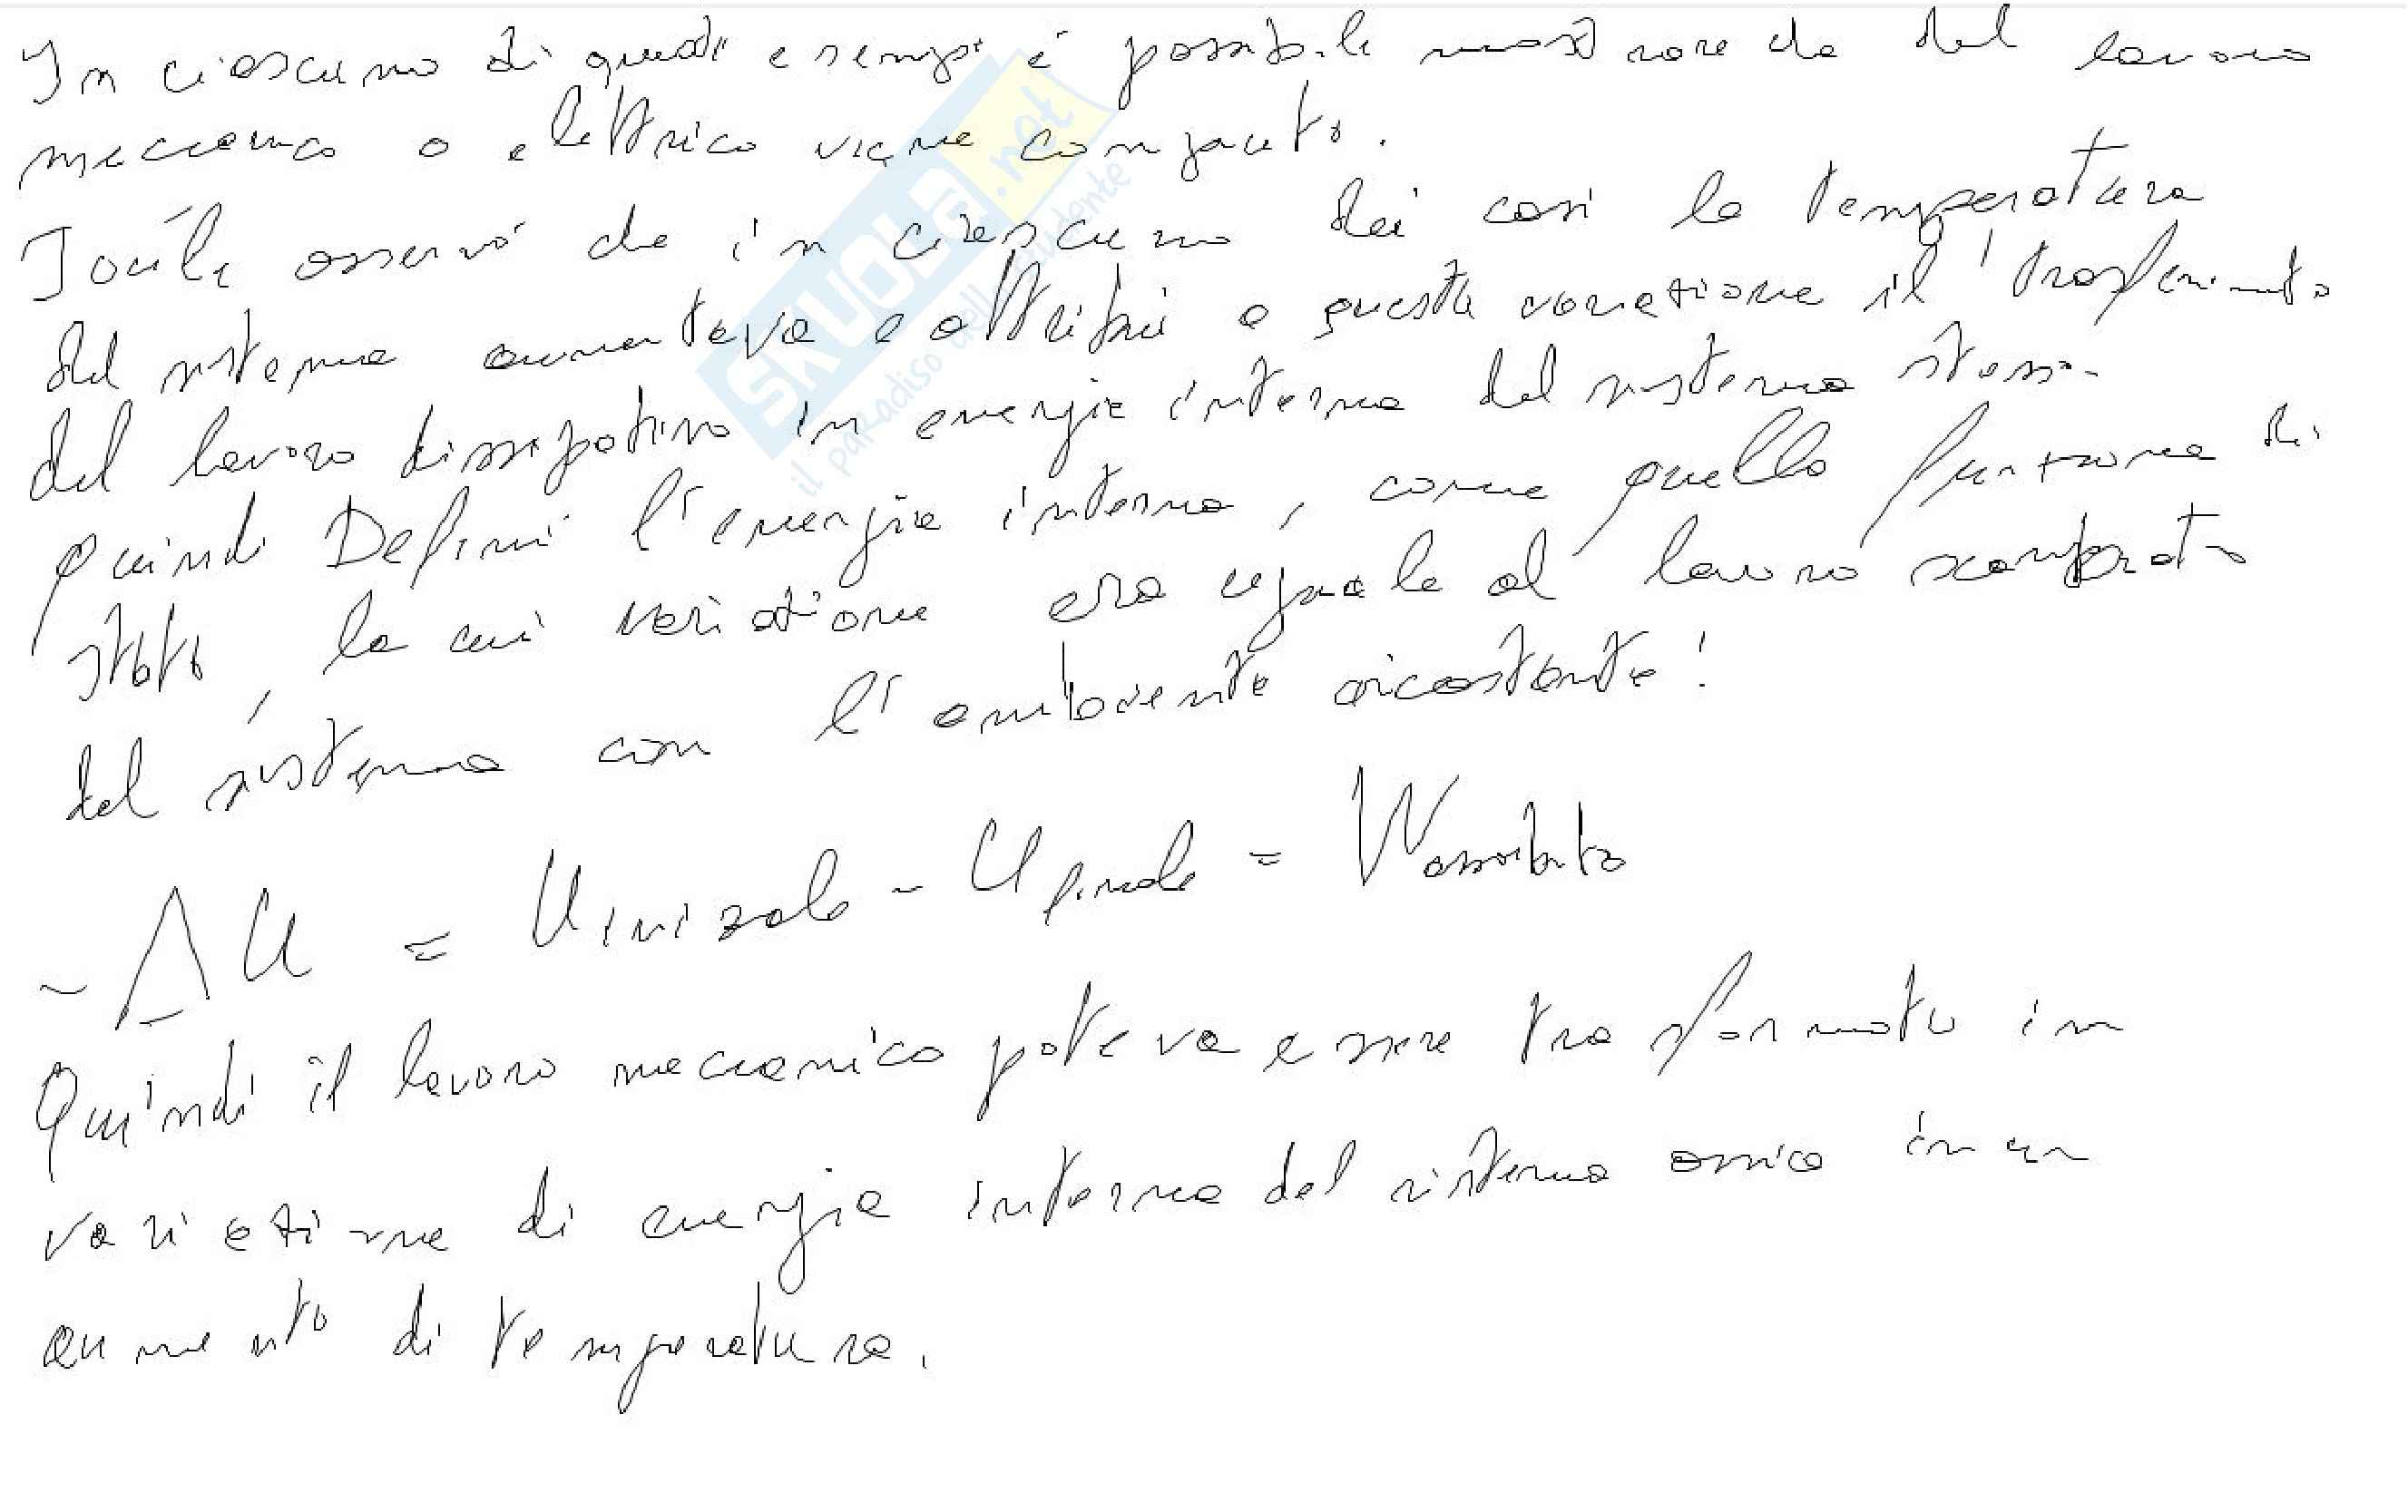 In ciascuno di questi esempi è possibile mostrare che del lavoro
meccanico o elettrico viene compiuto.
Joule osservò che in ciascuno dei casi la temperatura
del sistema aumentava e attribuì a questa variazione il trasferimento
del lavoro dissipativo in energia interna del sistema stesso.
Quindi Definì l'energia interna, come quella funzione di
stato, la cui variazione era uguale al lavoro scambiato
del sistema con l'ambiente circostante:
- ΔU = U iniziale - U finale = W assorbito
Quindi il lavoro meccanico poteva essere trasformato in
variazione di energia interna del sistema ossia in un
aumento di temperatura.
SKUOLA.net
il paradiso dello studente